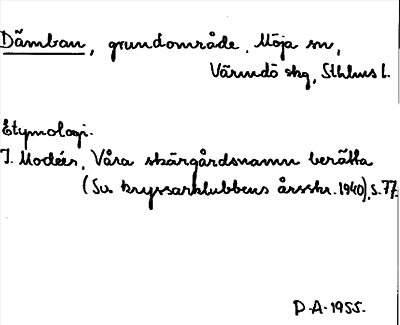 Dämban, grundområde, Möja sn,
Värmdö skg, Sthlms l.
Etymologi.
I. Modéer, Våra skärgårdsnamn berätta
(Sv. kryssarklubbens årsskr. 1940), s. 77.
D-A-1955.